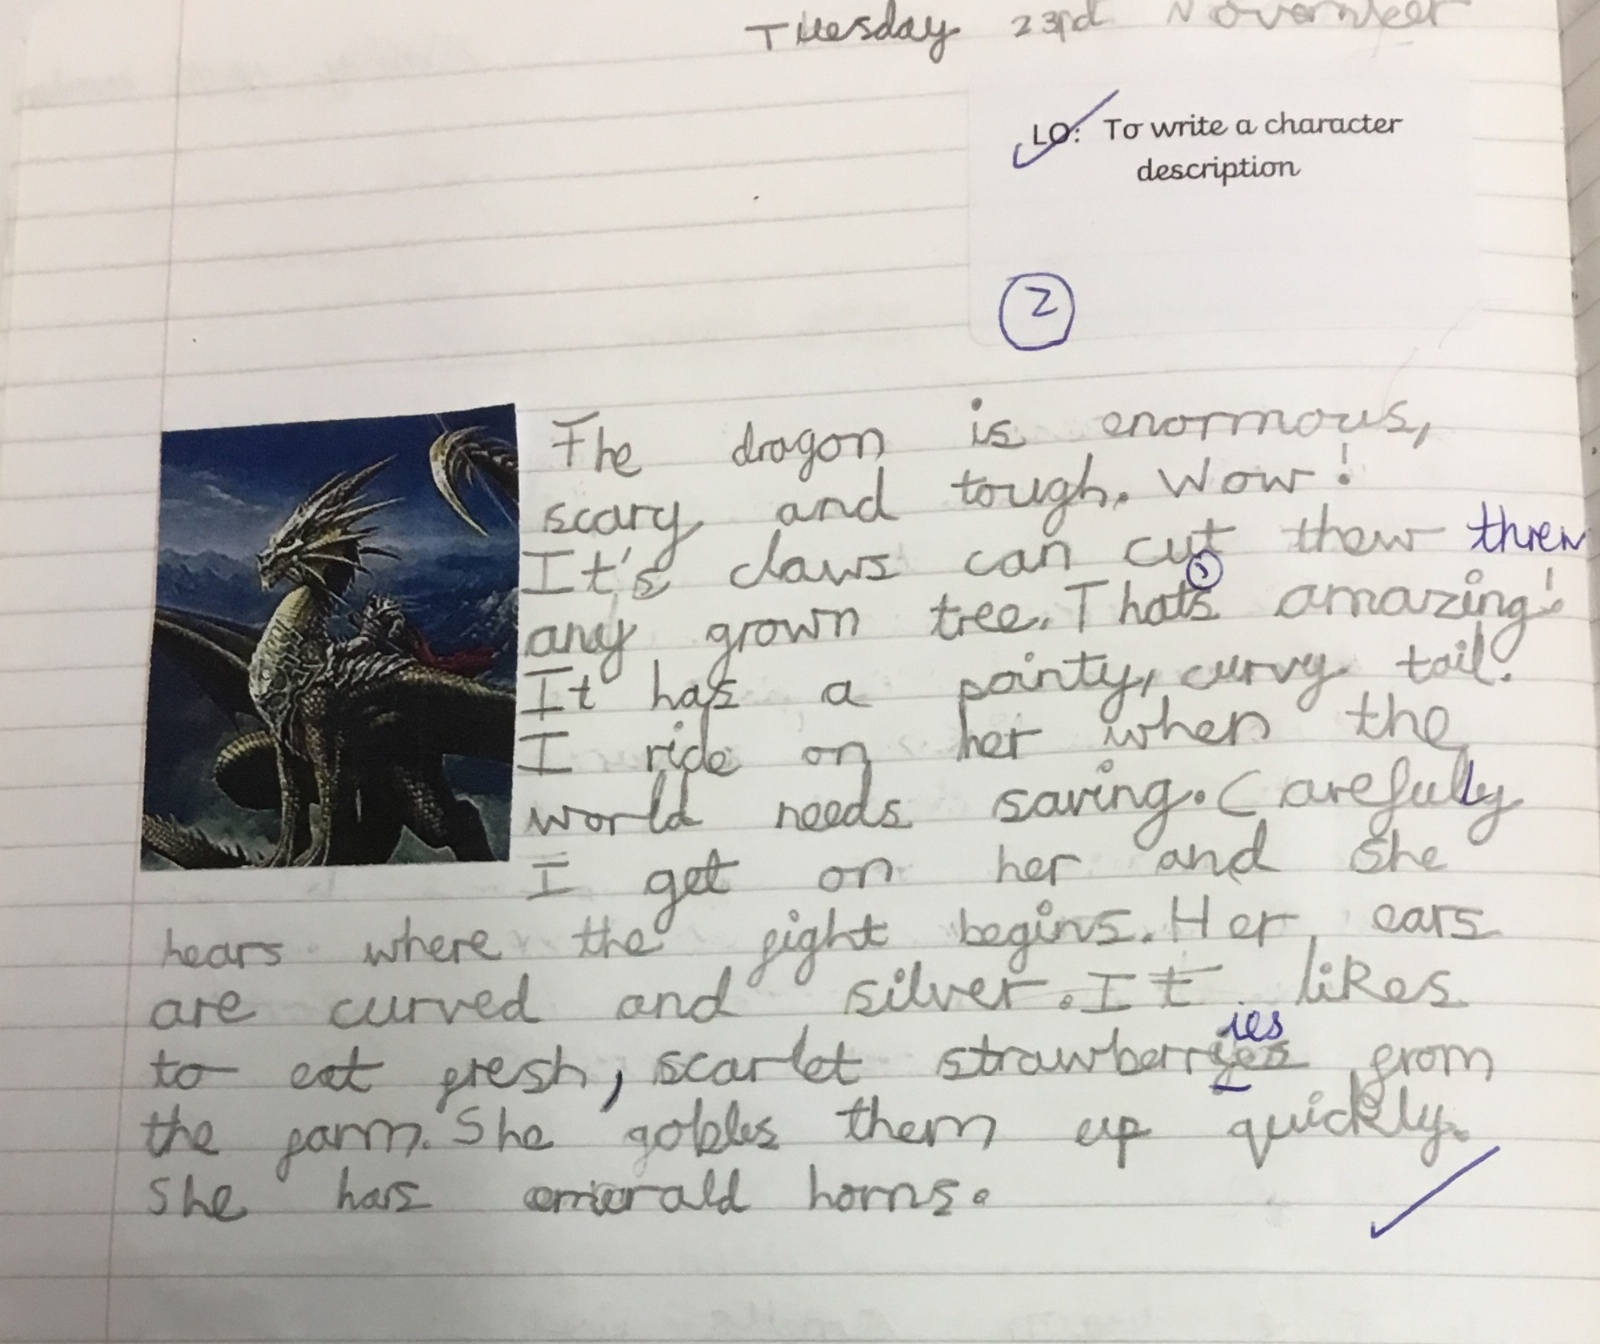 Tuesday 23rd November
LO: To write a character
description
2
The dragon is enormous,
scary and tough. Wow!
It's claws can cut thew threw
any grown tree. That's amazing!
It has a pointy, curvy tail.
I ride on her when the
world needs saving. Carefully
I get on her and she
hears where the fight begins. Her ears
are curved and silver. It likes
ies
to eat fresh, scarlet strawberryes from
the farm. She gobbles them up quickly.
She has emerald horns.